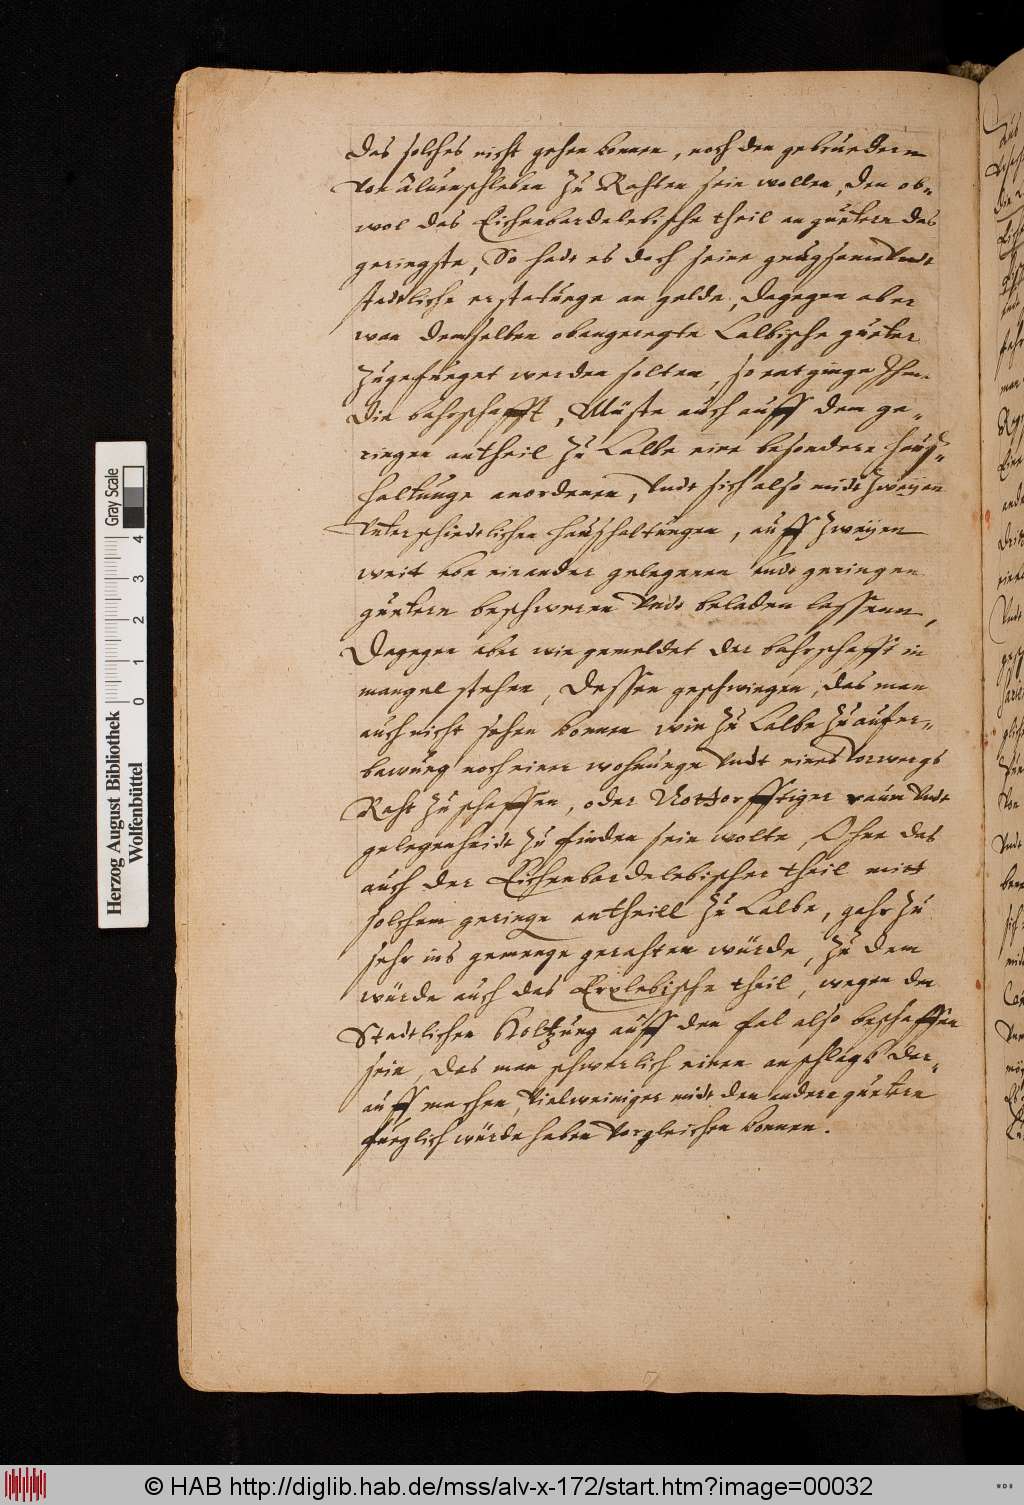 das solches nicht gehen konnen, noch den gebruedern
von Aluenschleben zu Rahten sein wollen, den ob-
wol das Eichenbardelebische theil an guetern das
geringste, So hadt es doch seine gnugsame vndt
stadtliche erstatunge an gelde, dagegen aber
wan demselben obangeregte Calbische gueter
zugefueget werden solten, so entginge Ihm
die bahrschafft, Müste auch auff dem ge-
ringen antheil zu Calbe eine besondere haus-
haltunge anordenen, vndt sich also midt zweyen
vnterschiedtlichen haushaltungen, auff zweyen
weit von einander gelegenen vndt geringen
guetern beschweren vndt beladen lassenn,
Dagegen aber wie gemeldet der bahrschafft in
mangel stehen, dessen geschwiegen, das man
auch nicht sehen konnen wie zu Calbe zu aufer-
bawung noch einer wohnunge vndt eines vorwergs
Raht zu schaffen, oder Notdorfftiger raum vndt
gelegenheidt zu finden sein wolte, Ohne das
auch der Eichenbardelebischer theil mitt
solchem geringe antheill zu Calbe, gahr zu
sehr ins gemenge gerahten würde, zu dem
würde auch das Erxlebische theil, wegen der
Stadtlichen Holtzung auff den fal also beschaffen
sein, das man schwerlich einen anschlagk dar-
auff machen, vielweiniger midt den andern guetern
fueglich würde haben vorgleichen konnen.
Herzog August Bibliothek
Wolfenbüttel
0 1 2 3 4
Gray Scale
© HAB http://diglib.hab.de/mss/alv-x-172/start.htm?image=00032